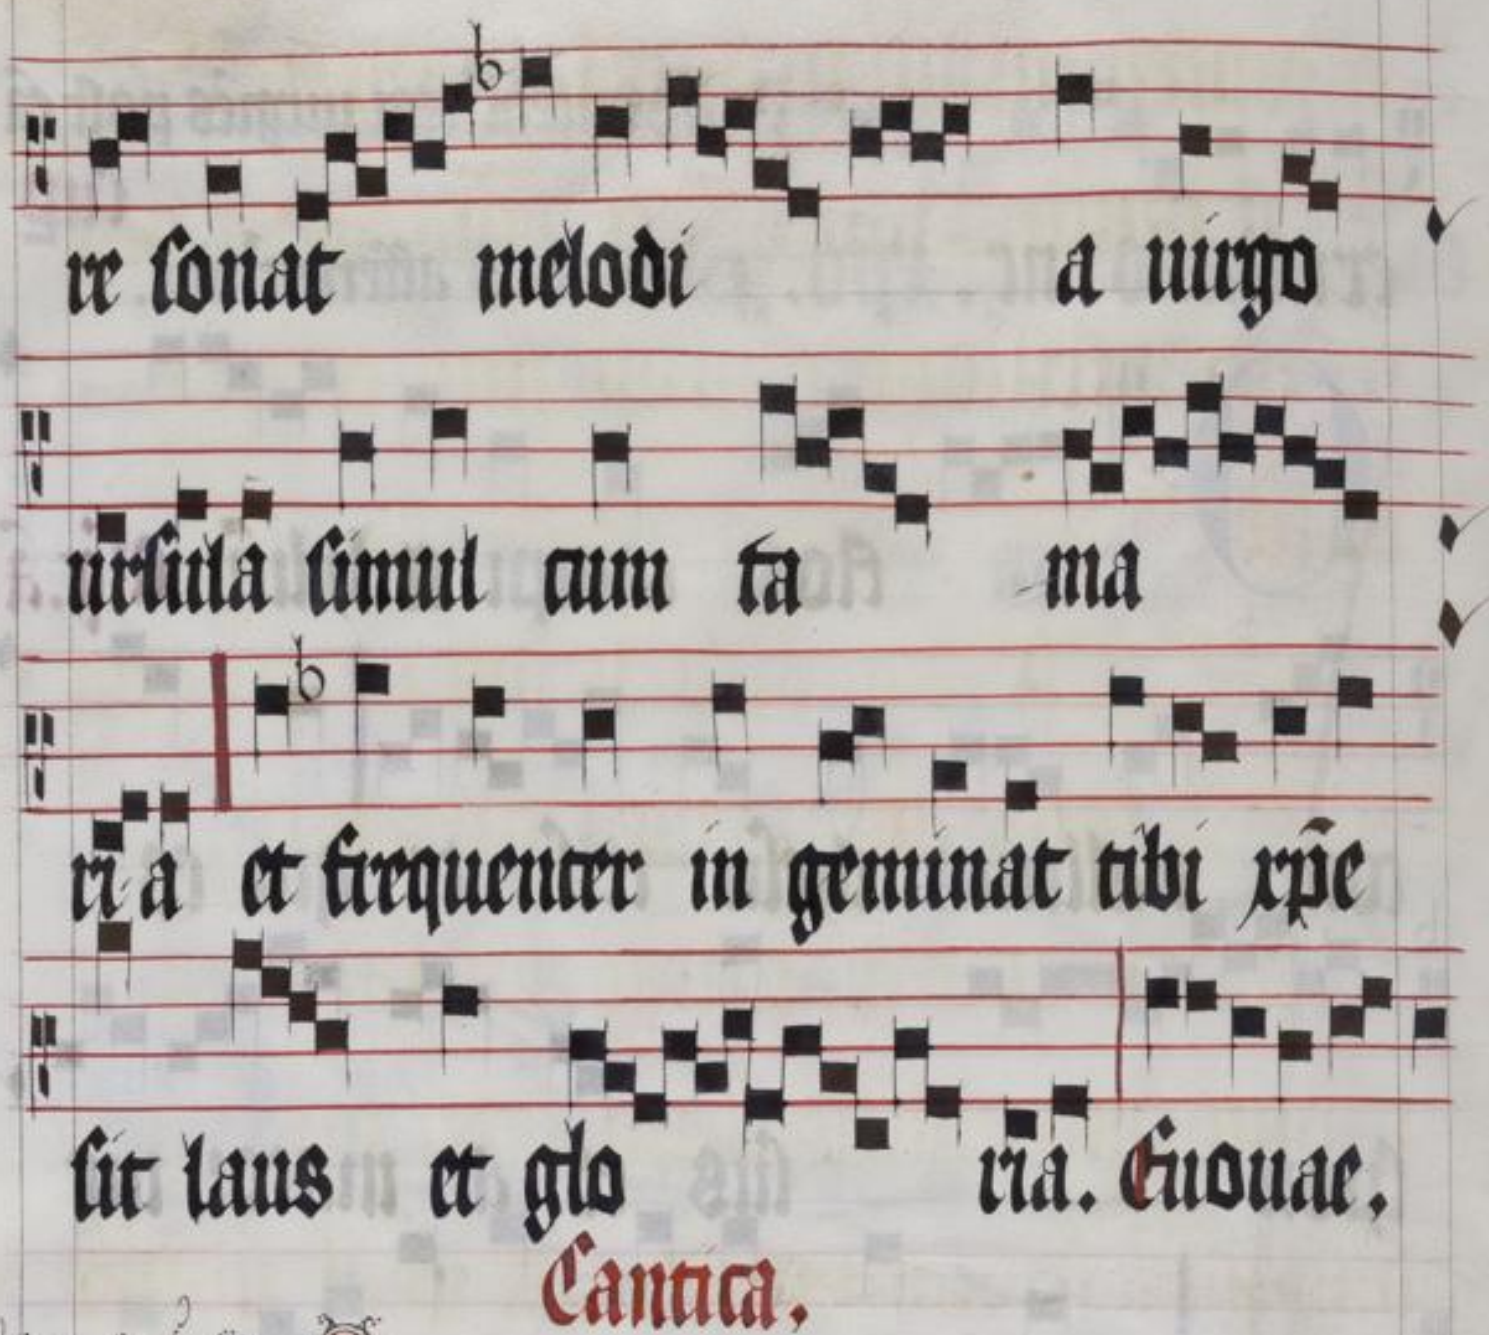 re sonat melodi a uirgo
ursula simul cum ta ma
ri a et frequenter in geminat tibi xp̄e
sit laus et glo ria. Euouae.
Cantica.